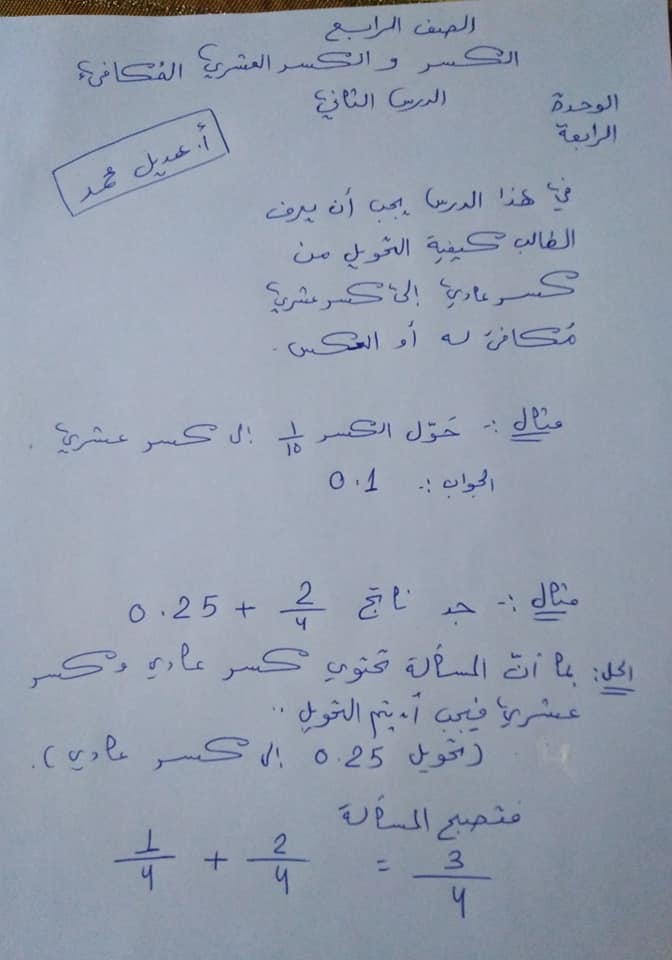 الصف الرابع
الكسر و الكسر العشري المُكافئ
الدرس الثاني
الوحدة
الرابعة
أ. عديل محمد
في هذا الدرس يجب أن يعرف
الطالب كيفية التحويل من
كسر عادي إلى كسر عشري
مُكافئ له أو العكس.
مثال :- حَوّل الكسر 1/10 إلى كسر عشري.
الجواب :- 0.1
مثال :- جد ناتج 2/4 + 0.25
الحل: بما أنّ المسألة تحتوي كسر عادي وكسر
عشري فيجب أن يتم التحويل ..
(تحويل 0.25 إلى كسر عادي).
فتصبح المسألة
1/4 + 2/4 = 3/4